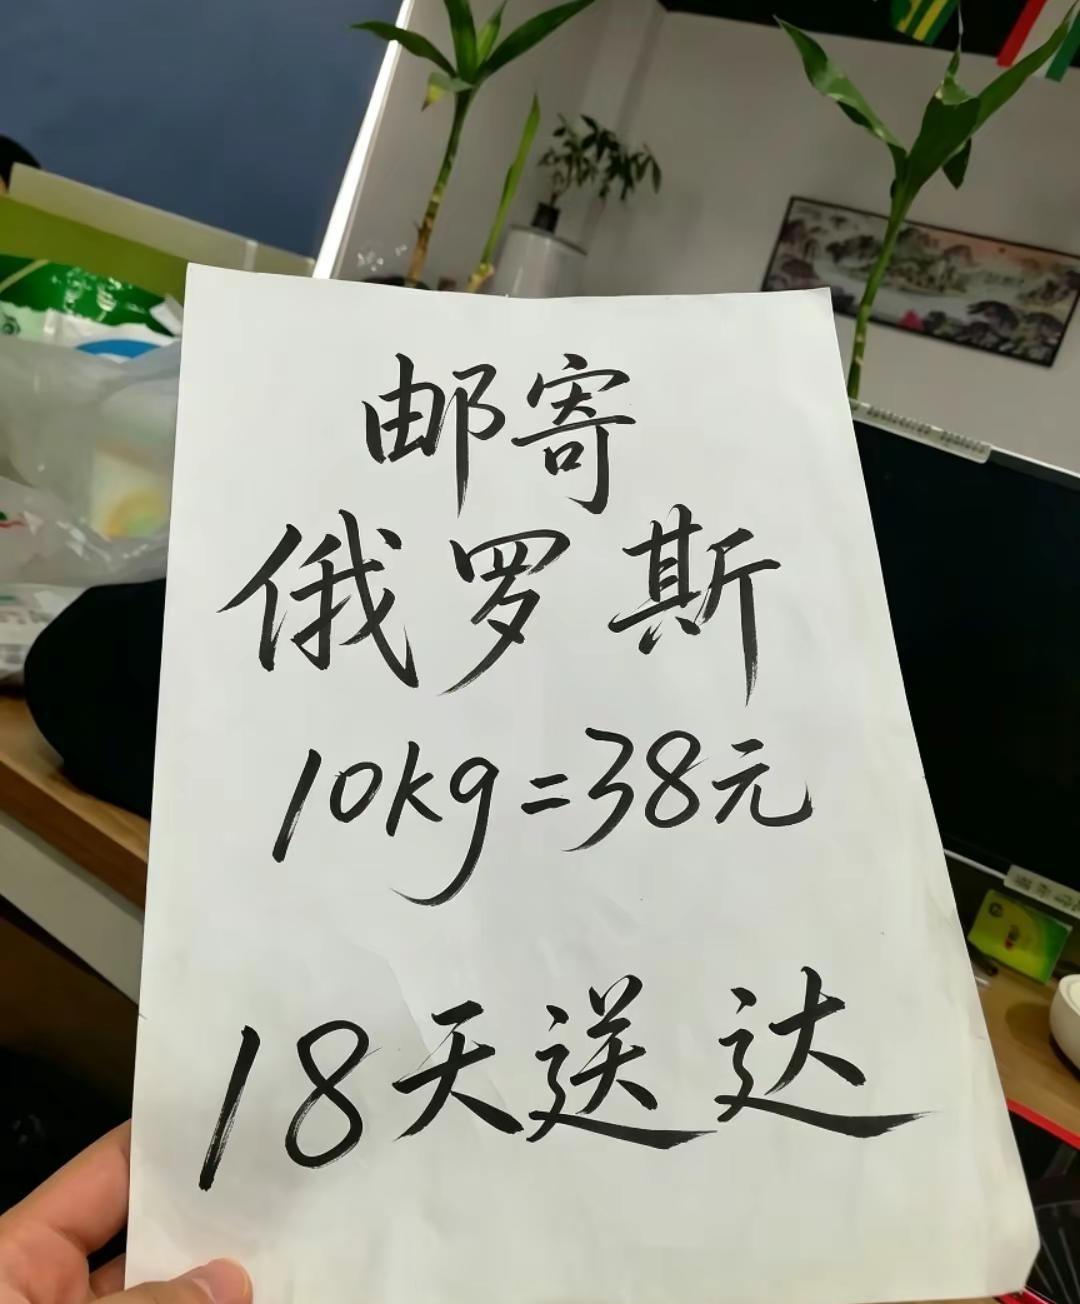 邮寄
俄罗斯
10kg=38元
18天送达